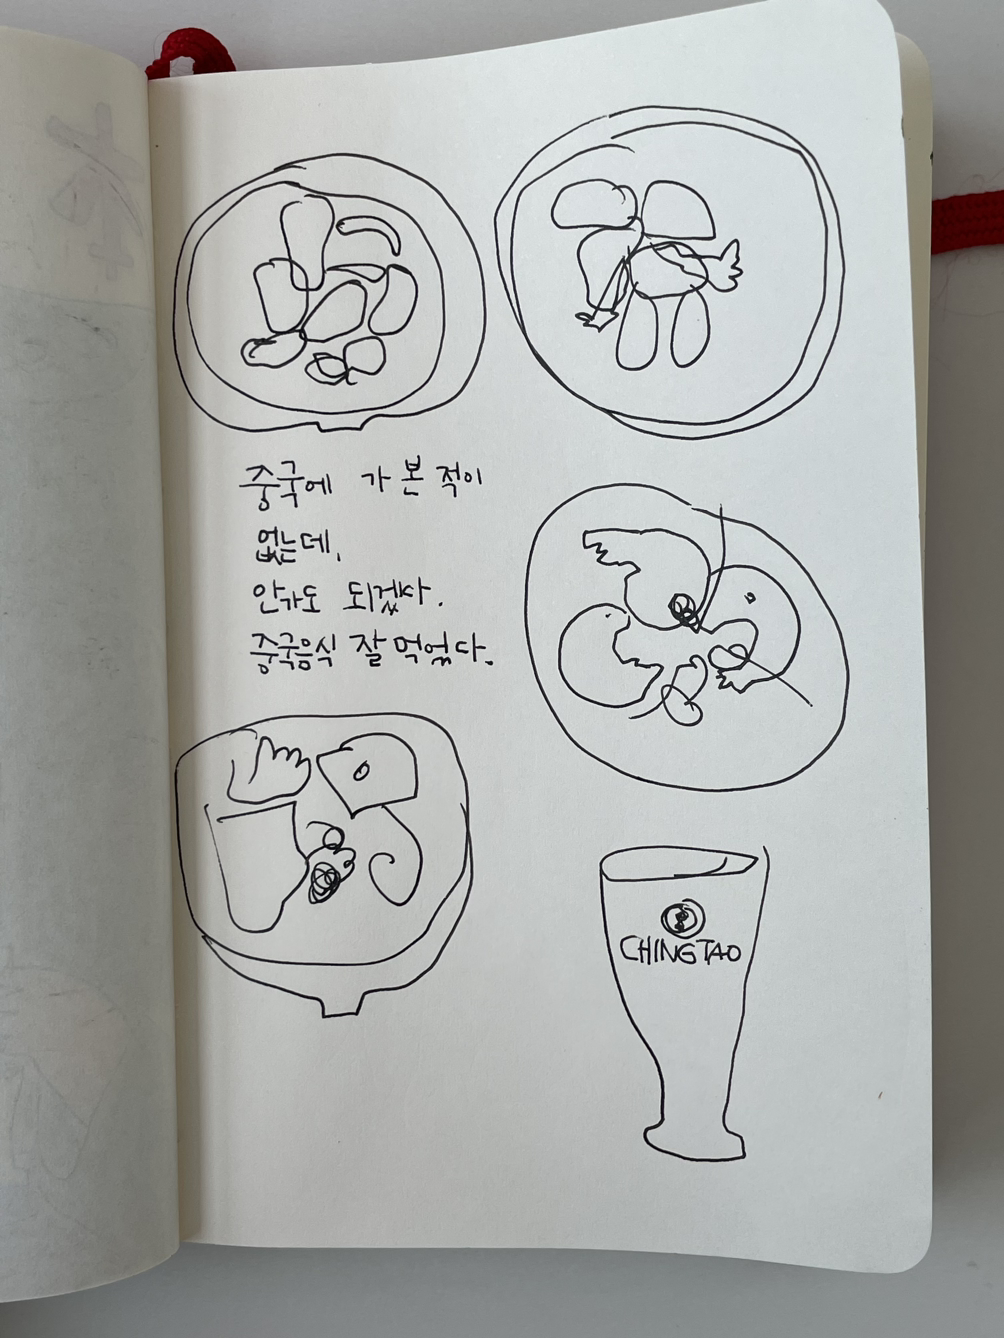 중국에 가 본 적이
없는데,
안가도 되겠다.
중국음식 잘 먹었다.
CHINGTAO